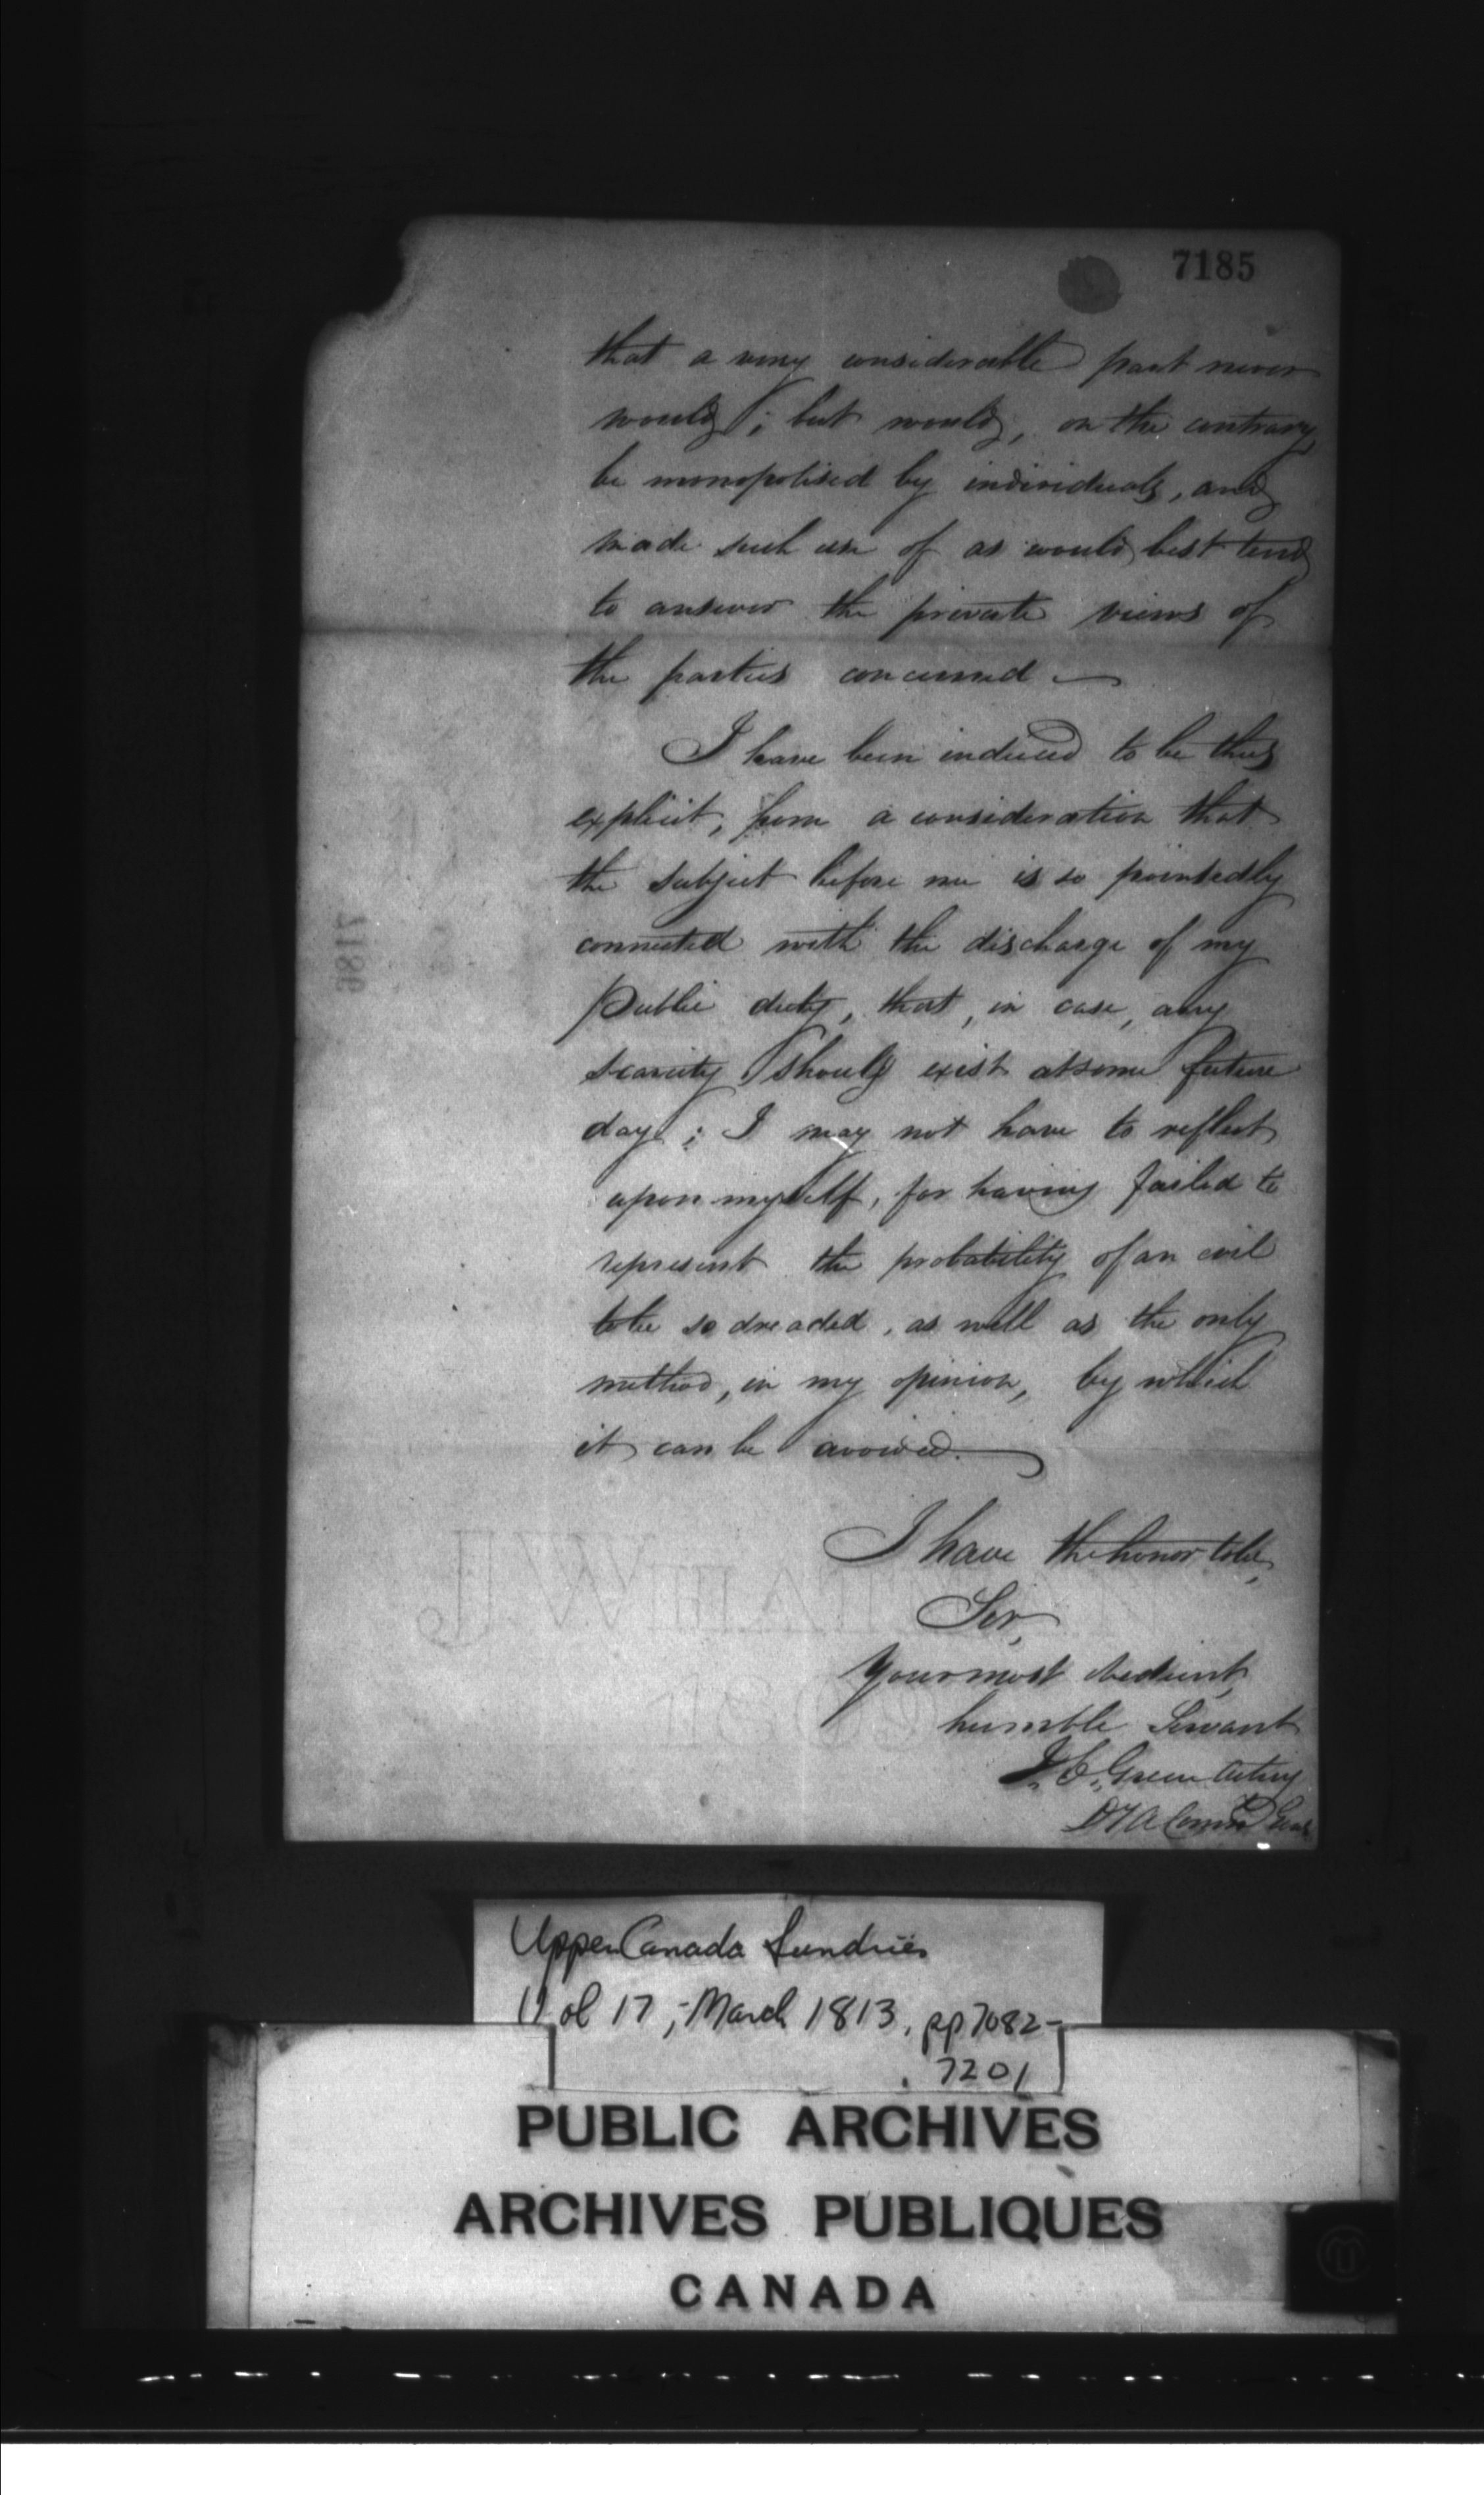 7185
that a very considerable part never
would; but would, on the contrary
be monopolised by individuals, and
made such use of as would best tend
to answer the private views of
the parties concerned —
I have been induced to be thus
explicit, from a consideration that
the subject before me is so pointedly
connected with the discharge of my
Public duty, that, in case, any
scarcity should exist at some future
day; I may not have to reflect
upon myself, for having failed to
represent the probability of an evil
to be so dreaded, as well as the only
method, in my opinion, by which
it can be avoided.
I have the honor to be,
Sir,
Your most obedient,
humble Servant
Green Acting
Genl
7186
Upper Canada Sundries
Vol 17, - March 1813, pp 7082-
7201
PUBLIC ARCHIVES
ARCHIVES PUBLIQUES
CANADA